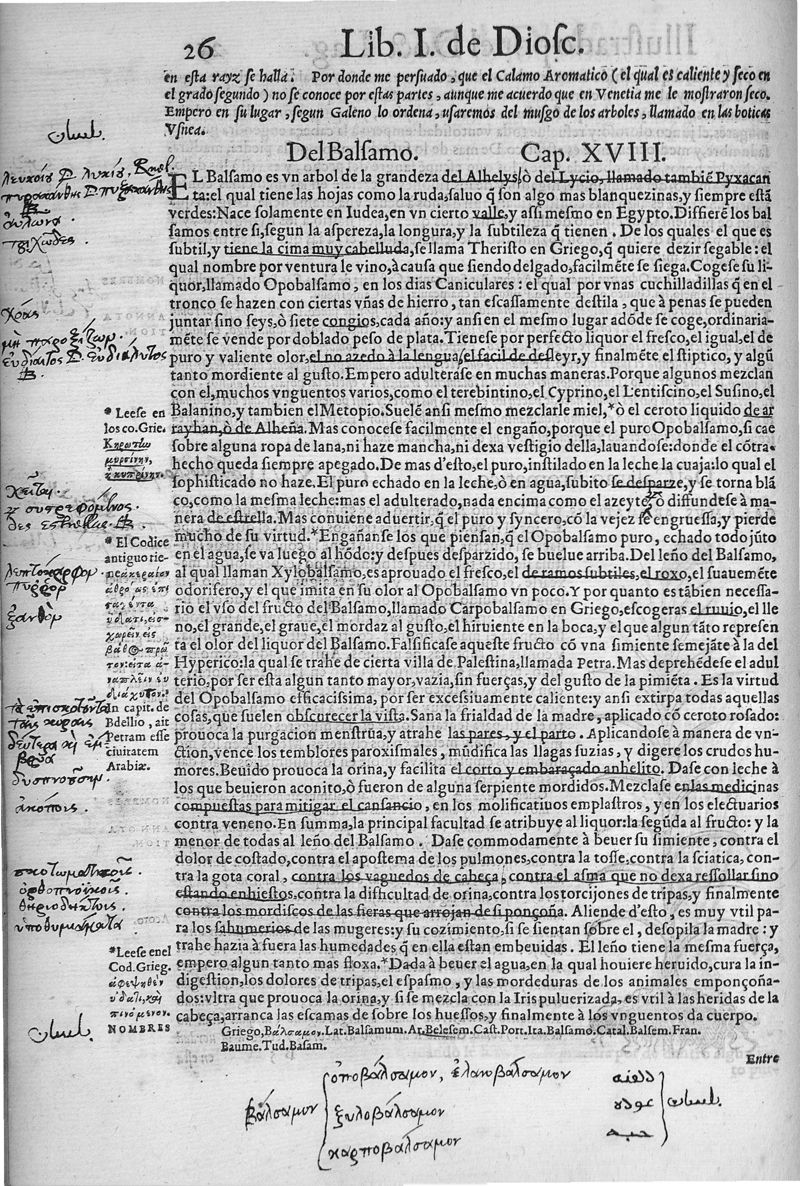 26 Lib. I. de Diosc.
en esta rayz se halla. Por donde me persuado, que el Calamo Aromatico (el qual es caliente y seco en
el grado segundo) no se conoce por estas partes, aunque me acuerdo que en Venetia me le mostraron seco.
Empero en su lugar, segun Galeno lo ordena, usaremos del musgo de los arboles, llamado en las boticas
Vsnea.
Del Balsamo. Cap. XVIII.
EL Balsamo es vn arbol de la grandeza del Alhelys, ò del Lycio, llamado tambiẽ Pyxacan
ta: el qual tiene las hojas como la ruda, saluo q̃ son algo mas blanquezinas, y siempre està
verdes: Nace solamente en Iudea, en vn cierto valle, y assi mesmo en Egypto. Differẽ los bal
samos entre si, segun la aspereza, la longura, y la subtileza q̃ tienen. De los quales el que es
subtil, y tiene la cima muy cabelluda, se llama Theristo en Griego, q̃ quiere dezir segable: el
qual nombre por ventura le vino, à causa que siendo delgado, facilmẽte se siega. Cogese su li-
quor, llamado Opobalsamo, en los dias Caniculares: el qual por vnas cuchilladillas q̃ en el
tronco se hazen con ciertas vñas de hierro, tan escassamente destila, que à penas se pueden
juntar sino seys, ò siete congios, cada año: y ansi en el mesmo lugar adõde se coge, ordinaria-
mẽte se vende por doblado peso de plata. Tienese por perfecto liquor el fresco, el igual, el de
puro y valiente olor, el no azedo à la lengua, el facil de desleyr, y finalmẽte el stiptico, y algũ
tanto mordiente al gusto. Empero adulterase en muchas maneras. Porque algunos mezclan
con el, muchos vnguentos varios, como el terebintino, el Cyprino, el Lentiscino, el Susino, el
Balanino, y tambien el Metopio. Suelẽ ansi mesmo mezclarle miel, *ò el ceroto liquido de ar
rayhan, ò de Alheña. Mas conocese facilmente el engaño, porque el puro Opobalsamo, si cae
sobre alguna ropa de lana, ni haze mancha, ni dexa vestigio della, lauandose: donde el cõtra-
hecho queda siempre apegado. De mas d'esto, el puro, instilado en la leche la cuaja: lo qual el
sophisticado no haze. El puro echado en la leche, ò en agua, subito se desparze, y se torna blã
co, como la mesma leche: mas el adulterado, nada encima como el azeyte, ò diffundese à ma-
nera de estrella. Mas conuiene aduertir, q̃ el puro y syncero, cõ la vejez se engruessa, y pierde
mucho de su virtud. *Engañanse los que piensan, q̃ el Opobalsamo puro, echado todo jũto
en el agua, se va luego al hõdo: y despues desparzido, se buelue arriba. Del leño del Balsamo,
al qual llaman Xylobalsamo, es aprouado el fresco, el de ramos subtiles, el roxo, el suauemẽte
odorifero, y el que imita en su olor al Opobalsamo vn poco. Y por quanto es tãbien necessa-
rio el vso del fructo del Balsamo, llamado Carpobalsamo en Griego, escogeras el ruuio, el lle
no, el grande, el graue, el mordaz al gusto, el hiruiente en la boca, y el que algun tãto represen
ta el olor del liquor del Balsamo. Falsificase aqueste fructo cõ vna simiente semejãte à la del
Hyperico: la qual se trahe de cierta villa de Palestina, llamada Petra. Mas deprehẽdese el adul
terio, por ser esta algun tanto mayor, vazia, sin fuerças, y del gusto de la pimiẽta. Es la virtud
del Opobalsamo efficacissima, por ser excessiuamente caliente: y ansi extirpa todas aquellas
cosas, que suelen obscurecer la vista. Sana la frialdad de la madre, aplicado cõ ceroto rosado:
prouoca la purgacion menstrua, y atrahe las pares, y el parto. Aplicandose à manera de vn-
ction, vence los temblores paroxismales, mũdifica las llagas suzias, y digere los crudos hu-
mores. Beuido prouoca la orina, y facilita el corto y embaraçado anhelito. Dase con leche à
los que beuieron aconito, ò fueron de alguna serpiente mordidos. Mezclase en las medicinas
compuestas para mitigar el cansancio, en los molificatiuos emplastros, y en los electuarios
contra veneno. En summa, la principal facultad se atribuye al liquor: la segũda al fructo: y la
menor de todas al leño del Balsamo. Dase commodamente à beuer su simiente, contra el
dolor de costado, contra el apostema de los pulmones, contra la tosse, contra la sciatica, con-
tra la gota coral, contra los vaguedos de cabeça, contra el asma que no dexa ressollar sino
estando enhiestos, contra la difficultad de orina, contra los torcijones de tripas, y finalmente
contra los mordiscos de las fieras que arrojan de si ponçoña. Aliende d'esto, es muy vtil pa-
ra los sahumerios de las mugeres: y su cozimiento, si se sientan sobre el, desopila la madre: y
trahe hazia à fuera las humedades, q̃ en ella estan embeuidas. El leño tiene la mesma fuerça,
empero algun tanto mas floxa. *Dada à beuer el agua, en la qual houiere heruido, cura la in-
digestion, los dolores de tripas, el espasmo, y las mordeduras de los animales emponçoña-
dos: vltra que prouoca la orina, y si se mezcla con la Iris puluerizada, es vtil à las heridas de la
cabeça, arranca las escamas de sobre los huessos, y finalmente à los vnguentos da cuerpo.
NOMBRES Griego, Βάλσαμον. Lat. Balsamum. Ar. Belesem. Cast. Port. Ita. Balsamo. Catal. Balsem. Fran.
Baume. Tud. Basam.
Entre
* Leese en
los co. Grie.
Κηρωτῷ
μυρσίνῃ,
ἢ κυπρίνῃ.
* El Codice
antiguo tie-
In capit. de
Bdellio, ait
Petram esse
ciuitatem
Arabiæ.
* Leese enel
Cod. Grieg.
ἀφεψηθὲν
ὕδατι, καὶ
πινόμενον.
αὐλῶνα
τριχῶδες
ξανθόν
δυσπνοοῦσιν
ἀκόποις
σκοτωματικοῖς
ὀρθοπνοϊκοῖς
θηριοδήκτοις
ὑποθυμιάματα
βάλσαμον
ὀποβάλσαμον, ἐλαιοβάλσαμον
ξυλοβάλσαμον
καρποβάλσαμον
دهنه
عوده
حبه
بلسان